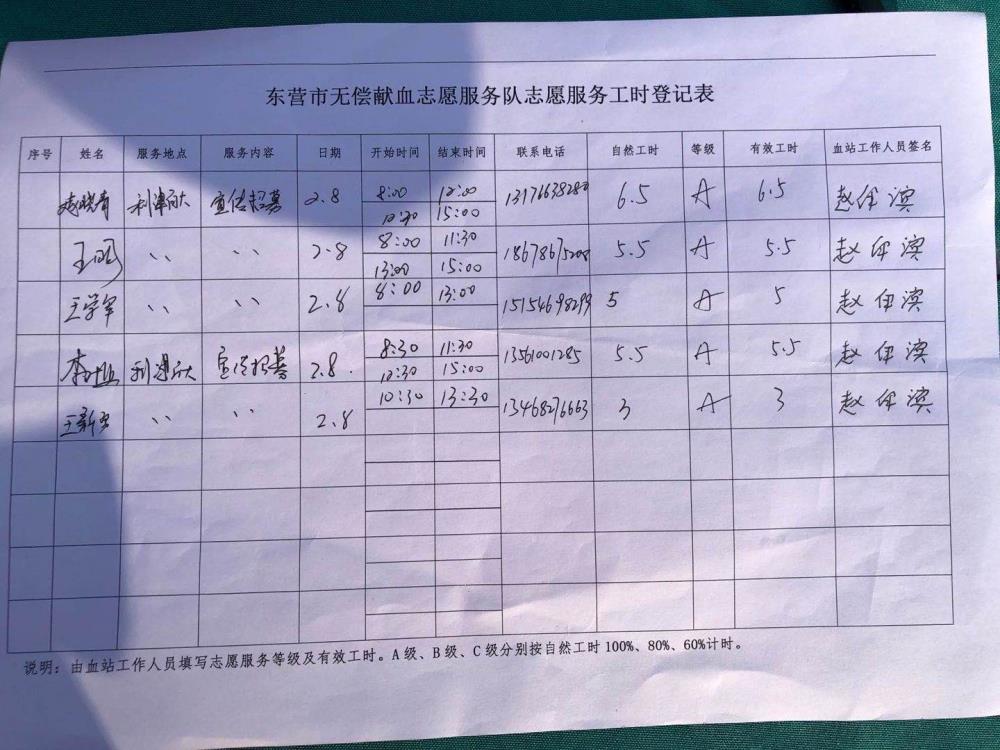 东营市无偿献血志愿服务队志愿服务工时登记表
序号 姓名 服务地点 服务内容 日期 开始时间 结束时间 联系电话 自然工时 等级 有效工时 血站工作人员签名
利津 宣传招募 2.8 8:00 15:00 6.5 A 6.5 赵伊滨
王 、、 、、 2.8 8:00 11:30 5.5 A 5.5 赵伊滨
13:00 15:00
王学军 、、 、、 2.8 8:00 13:00 15154698299 5 A 5 赵伊滨
李 利津 宣传招募 2.8. 8:30 11:30 13561001285 5.5 A 5.5 赵伊滨
12:30 15:00
王新 、、 、、 2.8 10:30 13:30 13468276663 3 A 3 赵伊滨
说明：由血站工作人员填写志愿服务等级及有效工时。A级、B级、C级分别按自然工时100%、80%、60%计时。